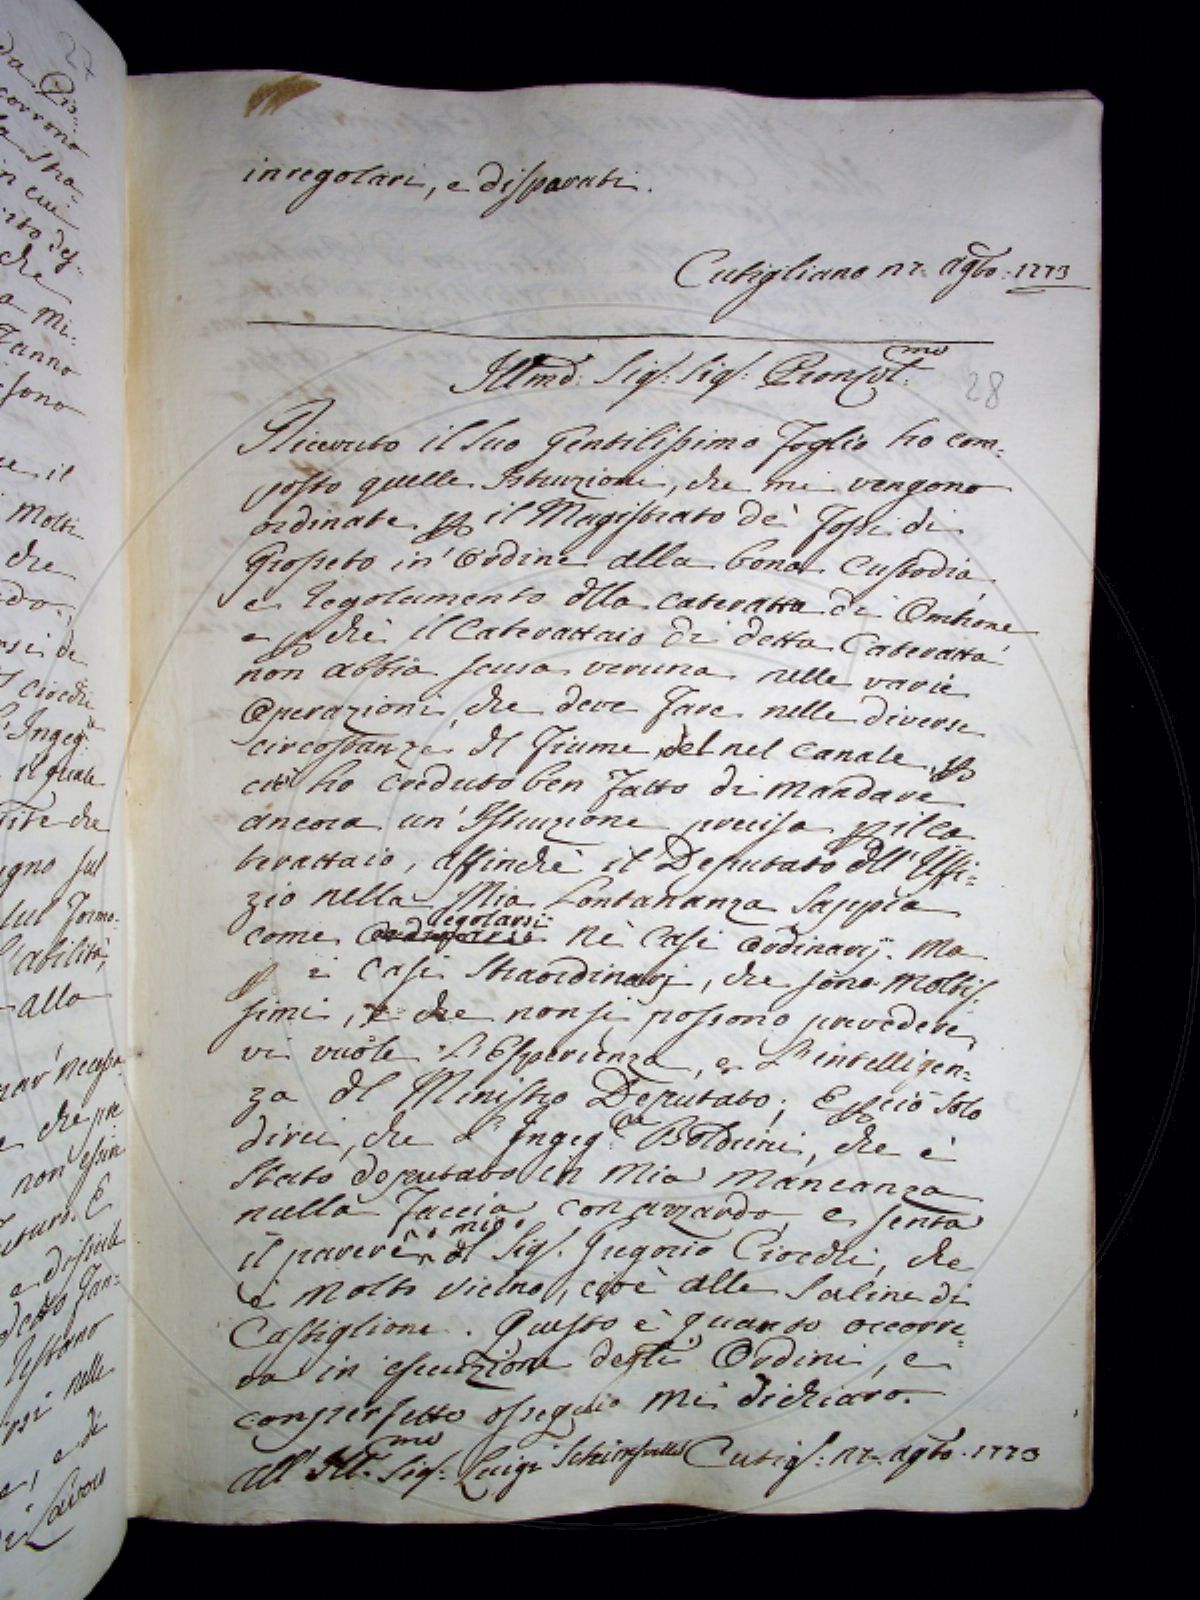 inregolari, e disparati.
Cutigliano 17. Agto. 1773
Illmo. Sigr. Sigr. Pron Col.mo
28
Ricevuto il suo Gentilissimo Foglio ho com-
posto quelle Istruzioni, che mi vengono
ordinate p il Magistrato de' Fossi di
Grosseto in Ordine alla bona custodia
e regolamento dlla cateratta di Ombrone
e p chè il Caterattaio di detta Cateratta
non abbia scusa veruna nelle varie
Operazioni, che deve fare nelle diverse
circostanze dl Fiume, del nel canale, p
ciò ho creduto ben fatto di mandare
ancora un' Istruzione precisa p il Ca
terattaio, affinchè il Deputato dll' Uffi-
zio nella Mia Lontananza sappia
come regolarsi nè casi ordinarij. Ma
p i casi straordinarj, che sono moltis-
simi, e che non si possono prevedere
vi vuole l'Esperienza, e l'intelligen-
za dl Ministro Deputato; E p ciò solo
direi, che l' Ingegre Boldrini, che è
stato deputato in mia mancanza
nulla faccia con azzardo, e senta
il parere o mio, o dl Sigr. Gregorio Ciocchi, che
è molto vicino, cioè alle Saline di
Castiglione. Questo è quanto occorre-
va in esecuzione degli Ordini, e
con perfetto ossequio mi dichiaro.
All' Ill.mo Sigr. Luigi Cutigl: 17. Agto. 1773
27